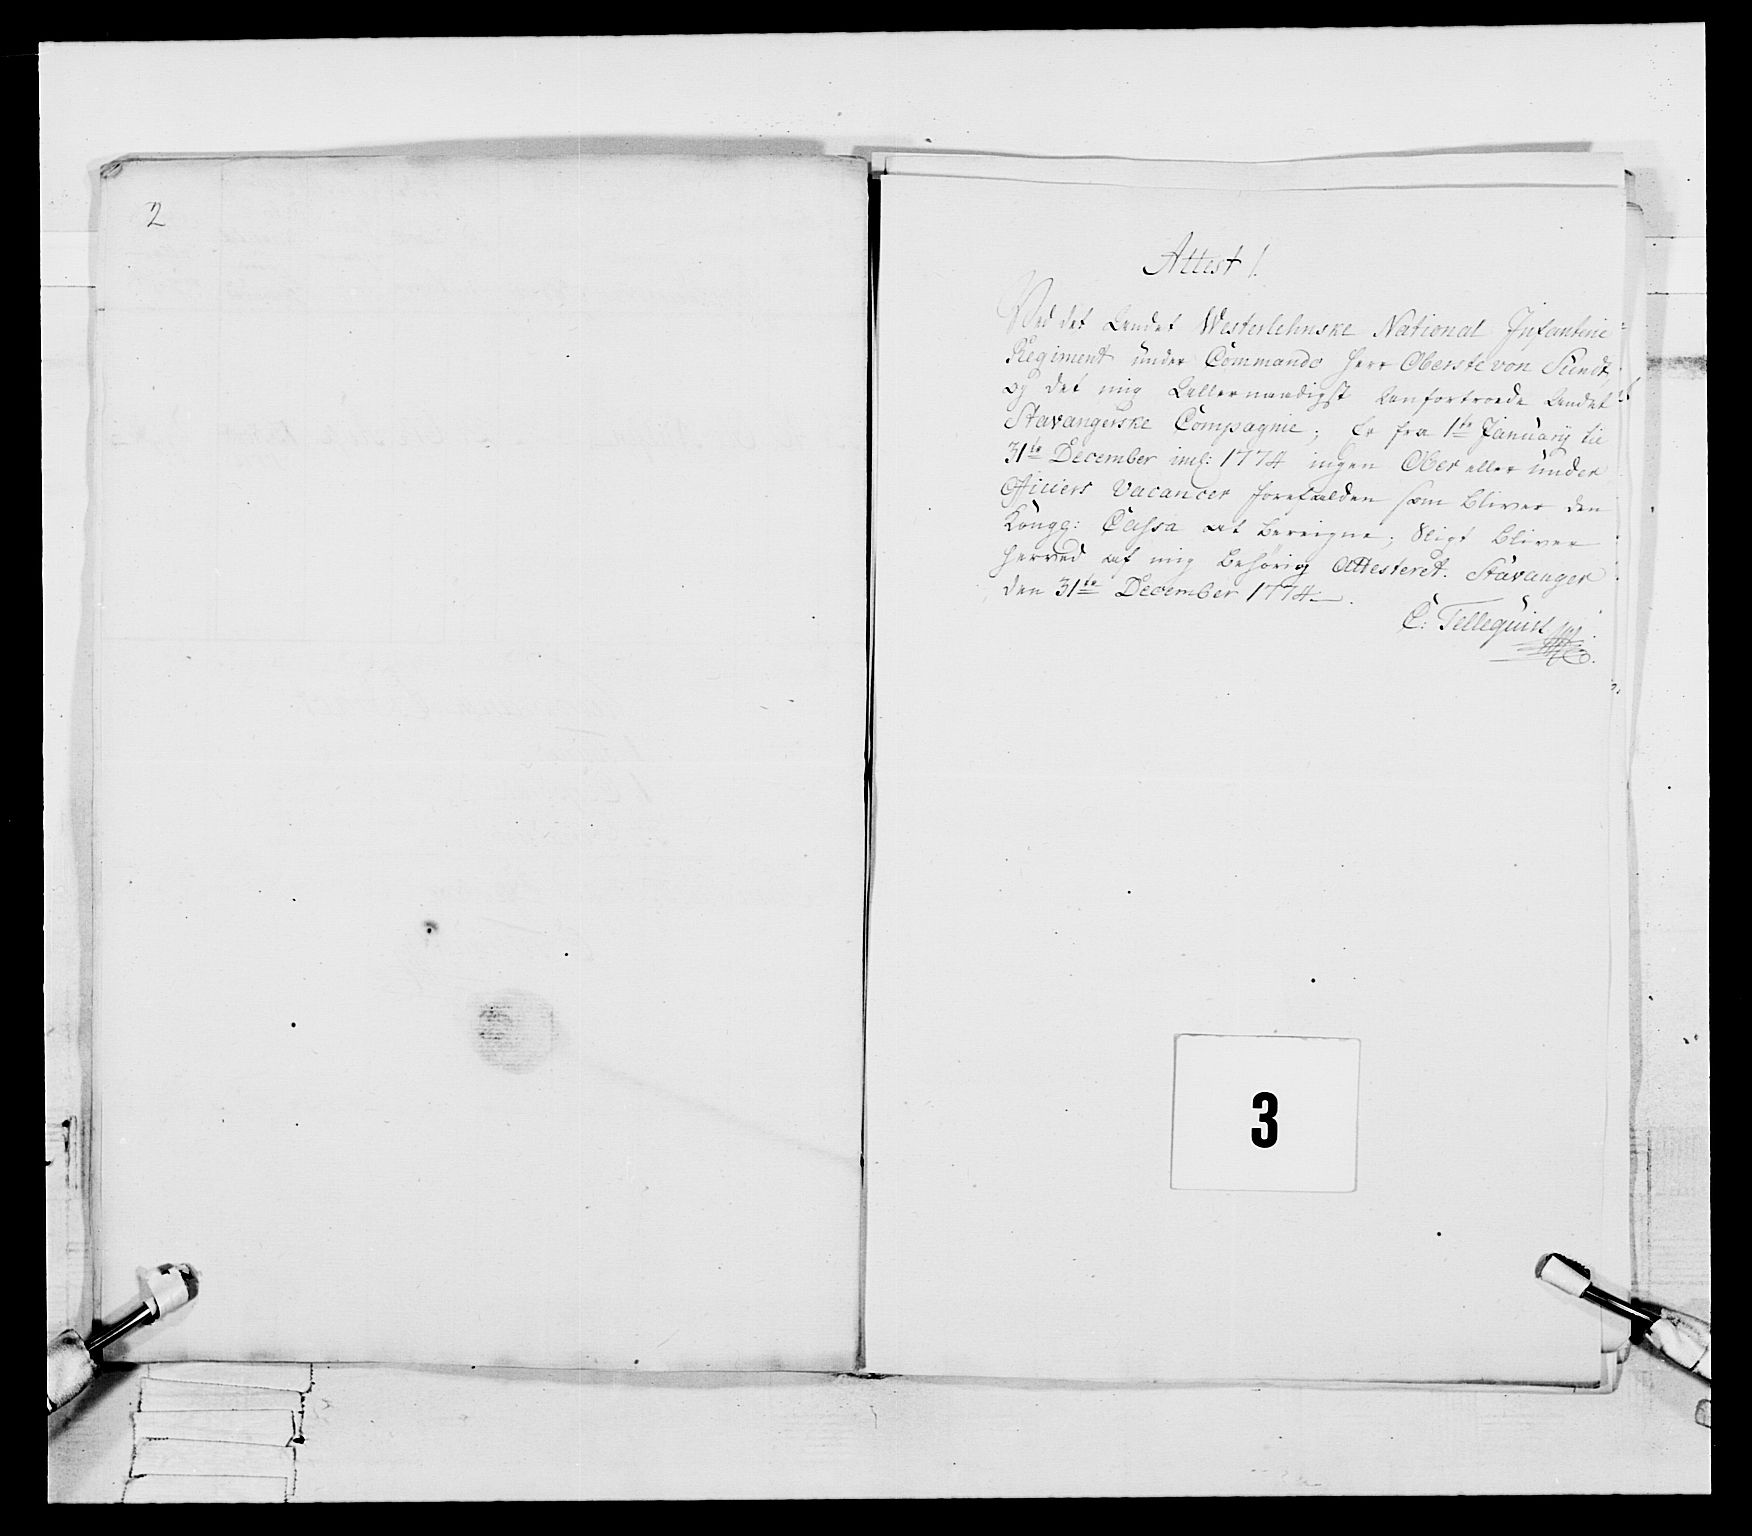 2
Attest /.
Ved det Andet Westerlehnske National Infanterie
Regiment under Commando Herr Oberste von Sundt,
og det mig Allernaadigst Anfortroede Andet
Stavangerske Compagnie, Er fra 1te January til
31te December incl: 1774 ingen Ober eller under
Officiers Vacancer forefalden som bliver den
Kongl: Cassa at bereigne, Sligt bliver
herved af mig behörig Attesteret. Stavanger
den 31te December 1774.
C: Tellequist
3